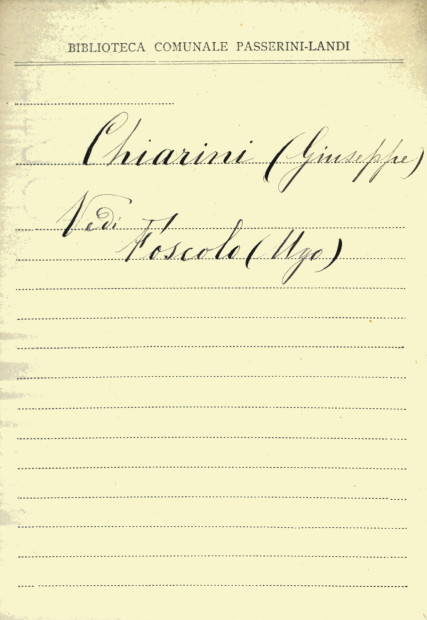 BIBLIOTECA COMUNALE PASSERINI-LANDI
Chiarini (Giuseppe)
Vedi
Foscolo (Ugo)